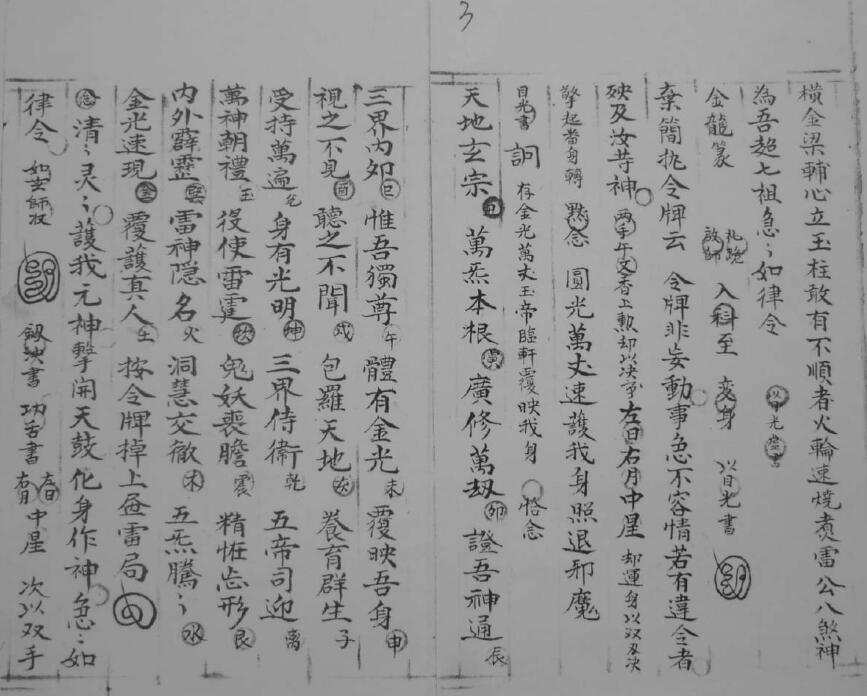 3
橫金梁輔心立玉柱敢有不順者火輪速燒煑雷公八煞神
為吾超七祖急〻如律令 以甲光盡書
金龍篆 入科至 变身 以目光書
棄簡執令牌云 令牌非妄動事急不容情若有違令者
殃及汝䓁神 两手午文香上勲却以决爭左日右月中星 却運身以双刄决
擎起當身轉 黙念 圓光萬丈速護我身照退邪魔
目光書 訶 存金光萬丈玉帝臨軒覆映我身 恪念
天地玄宗 萬炁本根寅 廣修萬刼卯 證吾神通辰
三界内外巳 惟吾獨尊午 體有金光未 覆映吾身申
視之不見酉 聽之不聞戌 包羅天地亥 養育群生子
受持萬遍 身有光明坤 三界侍衛乾 五帝司迎离
萬神朝禮 役使雷霆 鬼妖喪膽震 精怪忘形艮
内外霹靂 雷神隐名火 洞慧交徹木 五炁騰〻水
金光速現金 覆護真人土 按令牌掉上每雷局
念 清〻灵〻護我元神擊開天鼓化身作神急〻如
律令 如玄師状 劔訣書 功舌書 左日右月中星 次以双手